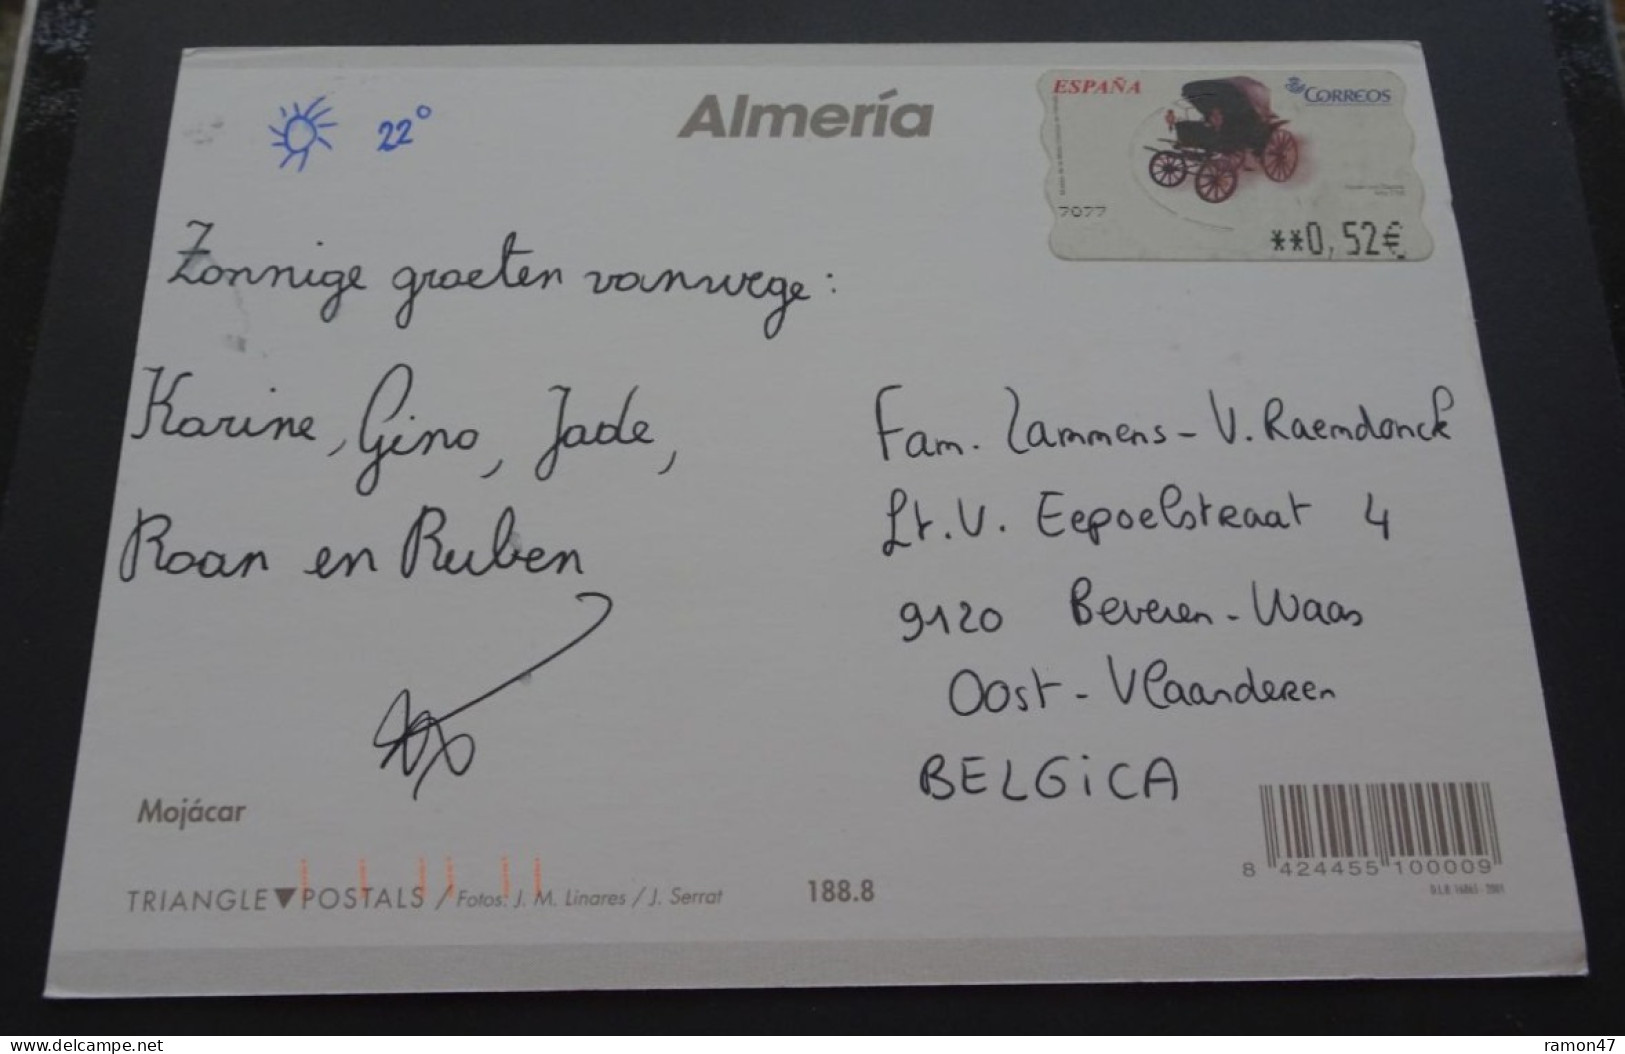 Almería
ESPAÑA
CORREOS
22°
7077
**0,52€
Zonnige groeten vanwege:
Karine, Gino, Jade,
Roan en Ruben
Fam. Lammens - V. Raemdonck
Lt. V. Eepoelstraat 4
9120 Beveren-Waas
Oost-Vlaanderen
BELGiCA
Mojácar
8 424455 100009
TRIANGLE▼POSTALS / Fotos: J. M. Linares / J. Serrat
188.8
delcampe.net
ramon47